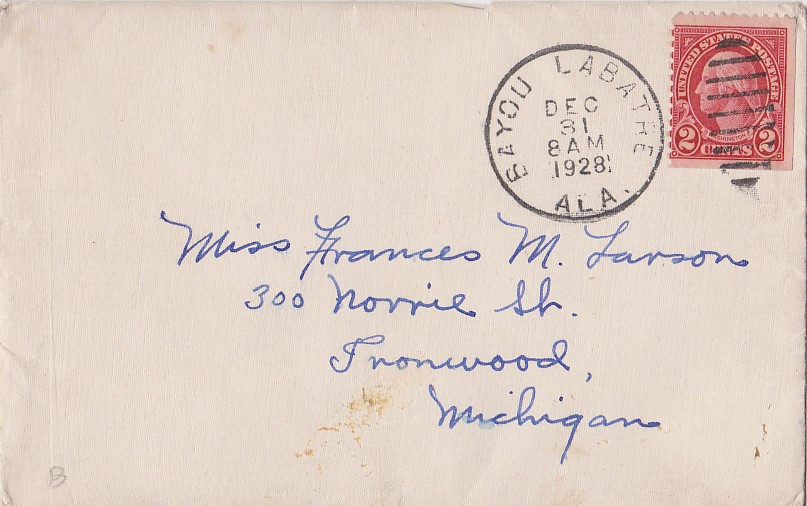 UNITED STATES POSTAGE
WASHINGTON
2 CENTS 2
BAYOU LABATRE
DEC
31
8 AM
1928
ALA.
Miss Frances M. Larson
300 Norrie St.
Ironwood,
Michigan
B